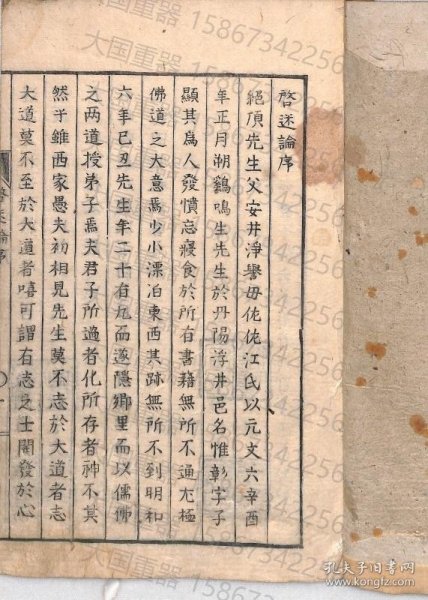 啓迷論序
絕頂先生父安井淨譽母佗佗江氏以元文六辛酉
年正月朔鷄鳴生先生於丹陽浮井邑名惟彰字子
顯其爲人發憤忘寢食於所有書籍無所不通尢極
佛道之大意焉少小漂泊東西其跡無所不到明和
六年已丑先生年二十有九而遂隱鄉里而以儒佛
之两道授弟子焉夫君子所過者化所存者神不其
然乎雖西家愚夫初相見先生莫不志於大道者志
大道莫不至於大道者嘻可謂有志之士闇發於心
大国重器 15867342256
孔夫子旧书网
www.kongfz.com